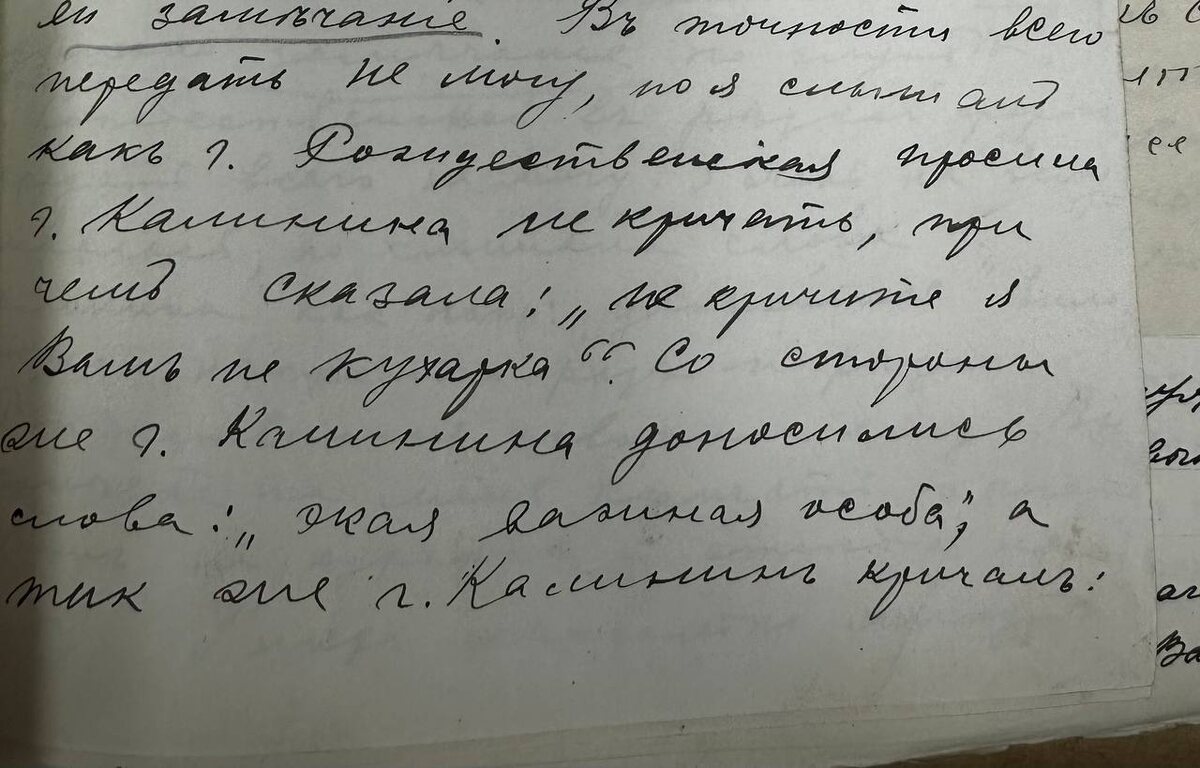 ей замѣчаніе. Въ точности всего
передать не могу, но я слышалъ
какъ г. Рождественская просила
г. Калинина не кричать, при
чемъ сказала: „не кричите я
Вамъ не кухарка“. Со стороны
же г. Калинина доносились
слова: „экая важная особа“, а
так же г. Калининъ кричалъ: